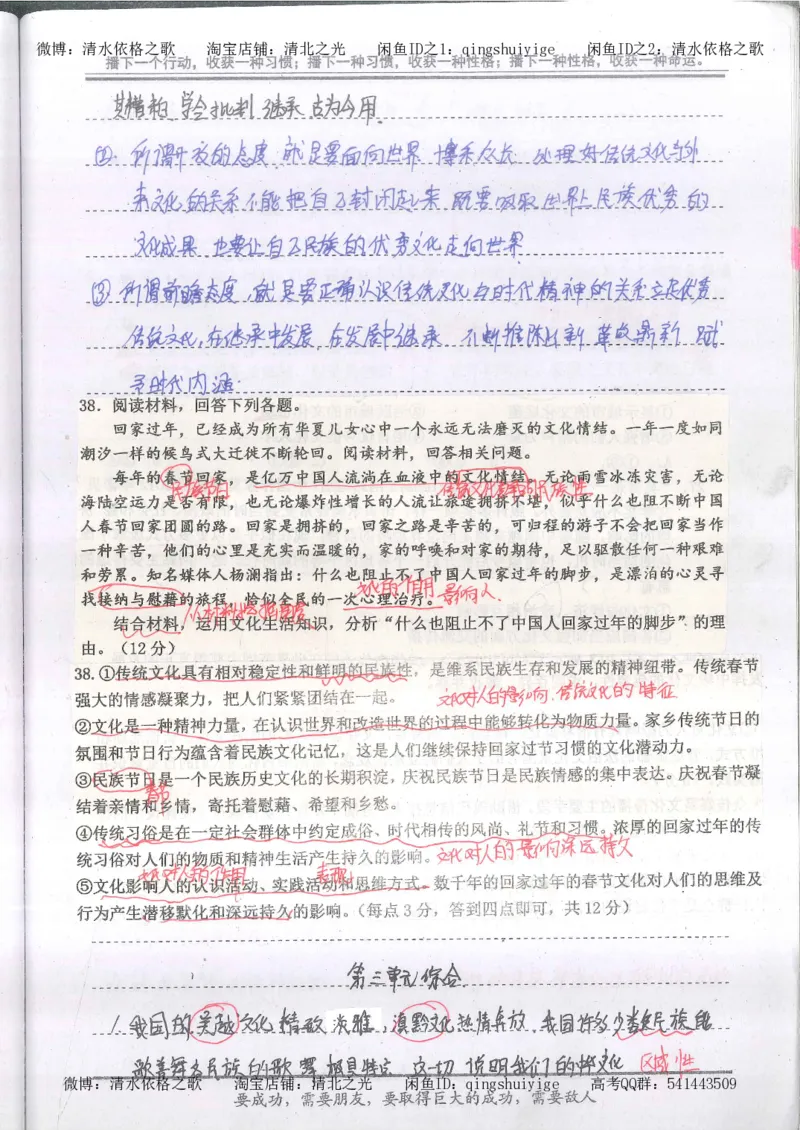 微博：清水依格之歌 淘宝店铺：清北之光 闲鱼ID之1：qingshuiyige 闲鱼ID之2：清水依格之歌
播下一个行动，收获一种习惯；播下一种习惯，收获一种性格；播下一种性格，收获一种命运。
其糟粕 学会批判继承 古为今用
②. 所谓开放的态度 就是要面向世界 博采众长 处理好传统文化与外
来文化的关系 不能把自己封闭起来 既要吸取世界上民族优秀的
文化成果 也要让自己民族的优秀文化走向世界
③ 所谓前瞻态度，就是要正确认识传统文化与时代精神的关系 立足优秀
传统文化，在继承中发展，在发展中继承 不断推陈出新 革故鼎新 赋
予时代内涵·
38. 阅读材料，回答下列各题。
回家过年，已经成为所有华夏儿女心中一个永远无法磨灭的文化情结。一年一度如同
潮汐一样的候鸟式大迁徙不断轮回。阅读材料，回答相关问题。
每年的春节回家，是亿万中国人流淌在血液中的文化情结。无论雨雪冰冻灾害，无论
传统节日
海陆空运力是否有限，也无论爆炸性增长的人流让旅途拥挤不堪，似乎什么也阻不断中国
人春节回家团圆的路。回家是拥挤的，回家之路是辛苦的，可归程的游子不会把回家当作
一种辛苦，他们的心里是充实而温暖的，家的呼唤和对家的期待，足以驱散任何一种艰难
和劳累。知名媒体人杨澜指出：什么也阻止不了中国人回家过年的脚步，是漂泊的心灵寻
文化的作用
找接纳与慰藉的旅程，恰似全民的一次心理治疗。
影响人.
结合材料，运用文化生活知识，分析“什么也阻止不了中国人回家过年的脚步”的理
由。（12分）
38.①传统文化具有相对稳定性和鲜明的民族性，是维系民族生存和发展的精神纽带。传统春节
强大的情感凝聚力，把人们紧紧团结在一起。
文化对人的影响.传统文化的特征
②文化是一种精神力量，在认识世界和改造世界的过程中能够转化为物质力量。家乡传统节日的
氛围和节日行为蕴含着民族文化记忆，这是人们继续保持回家过节习惯的文化潜动力。
③民族节日是一个民族历史文化的长期积淀，庆祝民族节日是民族情感的集中表达。庆祝春节凝
春节
结着亲情和乡情，寄托着慰藉、希望和乡愁。
④传统习俗是在一定社会群体中约定成俗、时代相传的风尚、礼节和习惯。浓厚的回家过年的传
统习俗对人们的物质和精神生活产生持久的影响。
文化对人的影响深远持久
文化对人的作用 表现
⑤文化影响人的认识活动、实践活动和思维方式。数千年的回家过年的春节文化对人们的思维及
行为产生潜移默化和深远持久的影响。（每点3分，答到四点即可，共12分）
第三单元综合
1. 我国的吴越文化 精致 淡雅，滇黔文化热情奔放 我国许多少数民族能
歌善舞 各民族的歌舞极具特点 这一切说明我们的中华文化 区域性
微博：清水依格之歌 淘宝店铺：清北之光 闲鱼ID：qingshuiyige 高考QQ群：541443509
要成功，需要朋友，要取得巨大的成功，需要敌人